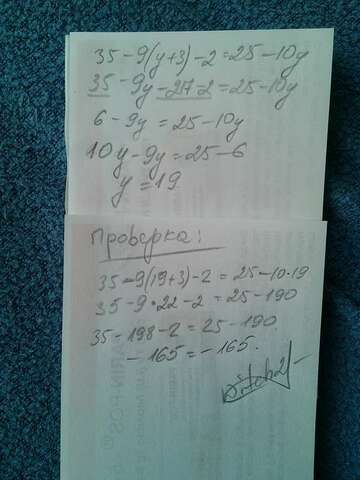 35-9(y+3)-2=25-10y
35-9y-27-2=25-10y
6-9y=25-10y
10y-9y=25-6
y=19
Проверка:
35-9(19+3)-2=25-10·19
35-9·22-2=25-190
35-198-2=25-190
-165=-165.